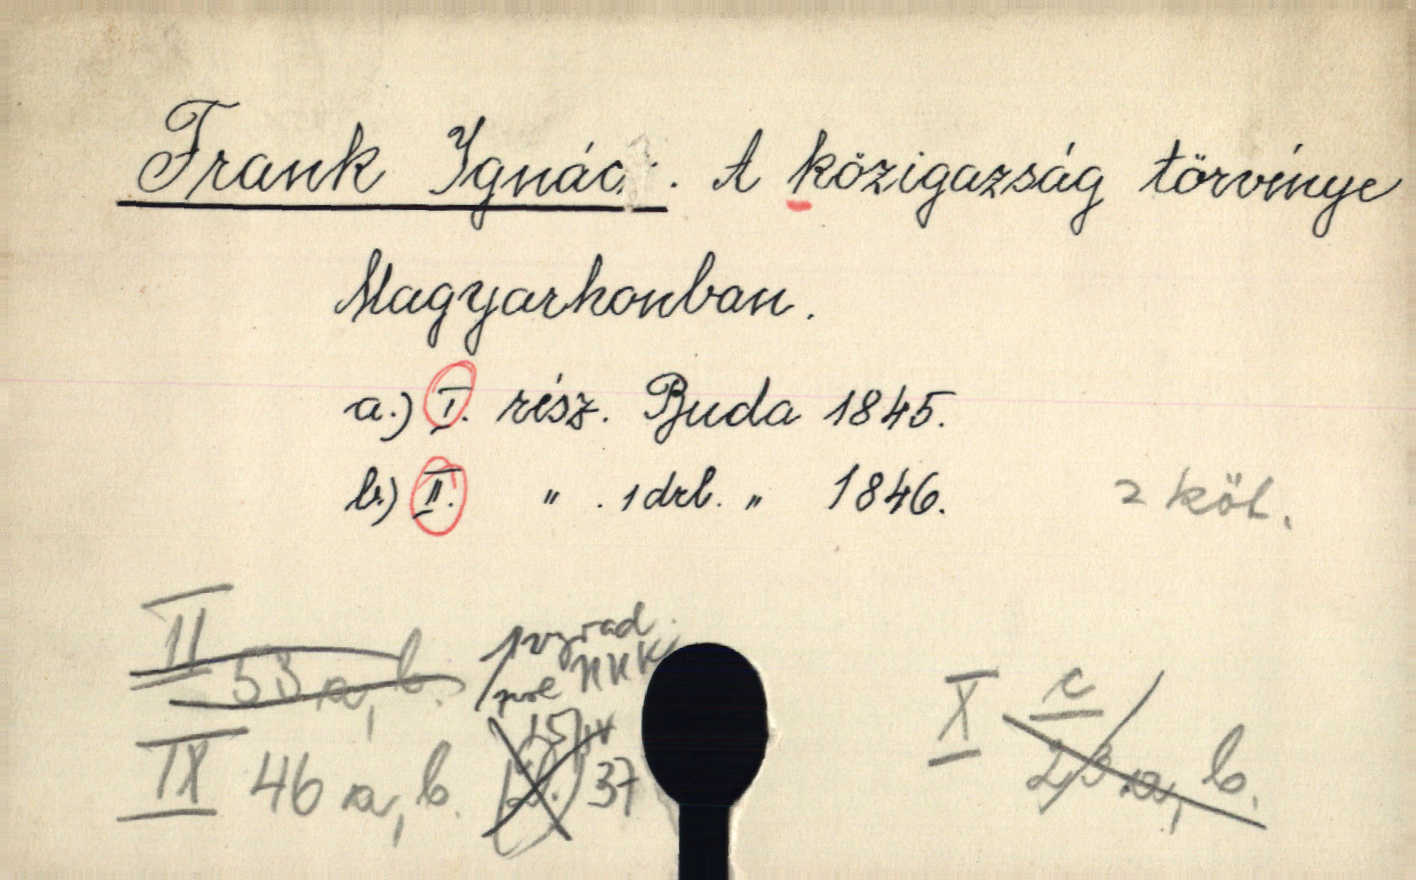 Frank Ignác. A közigazság törvénye
Magyarhonban.
a.) I. rész. Buda 1845.
b.) II. " . 1 drb. " 1846.
2 köt.
II 53 a, b.
IX 46 a, b. 37
X c 23 a, b.